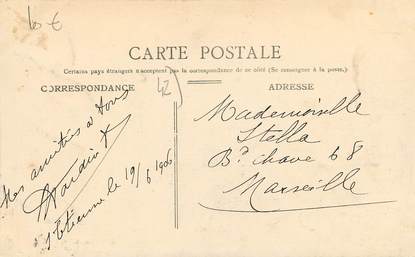 6 €
CARTE POSTALE
Certains pays étrangers n'acceptent pas la correspondance de ce côté (Se renseigner à la poste.)
CORRESPONDANCE
ADRESSE
42
Mes amitiés a tous
St Etienne le 19/6 1906
Mademoiselle
Stella
Bd chave 68
Marseille